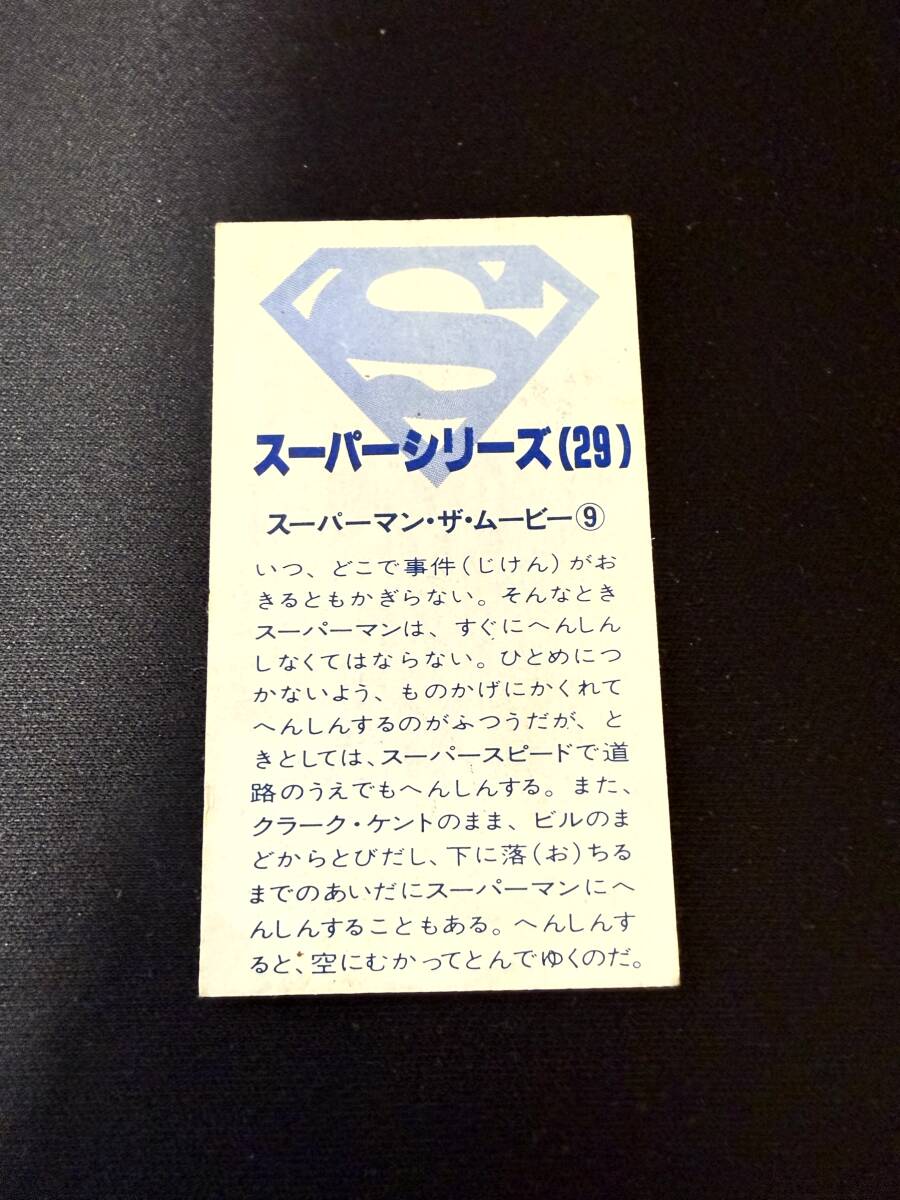 S
スーパーシリーズ(29)
スーパーマン・ザ・ムービー⑨
いつ、どこで事件(じけん)がお
きるともかぎらない。そんなとき
スーパーマンは、すぐにへんしん
しなくてはならない。ひとめにつ
かないよう、ものかげにかくれて
へんしんするのがふつうだが、と
きとしては、スーパースピードで道
路のうえでもへんしんする。また、
クラーク・ケントのまま、ビルのま
どからとびだし、下に落(お)ちる
までのあいだにスーパーマンにへ
んしんすることもある。へんしんす
ると、空にむかってとんでゆくのだ。